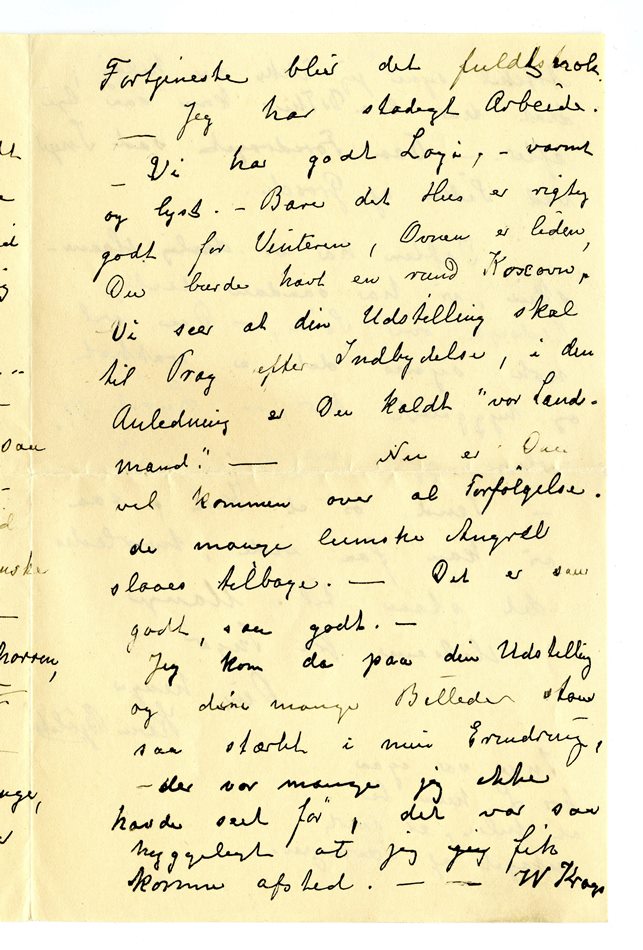 Fortjeneste blir det fuldt nok.
— Jeg har stadigt Arbeide.
— Vi har godt Logi, – varmt
og lyst. – Bare det Hus er rigtig
godt for Vinteren, Ovnen er liden,
Du burde havt en rund Koxovn,
Vi seer at din Udstilling skal
til Prag efter Indbydelse, i den
Anledning er Du kaldt "vor Lands-
mand". — Nu er Du
vel kommen over al Forfölgelse.
de mange lumske Angreb
slaaes tilbage. — Det er saa
godt, saa godt. —
Jeg kom da paa din Udstilling
og dine mange Billeder staar
saa stærkt i min Erindring,
– der var mange jeg ikke
havde seet för, det var saa
hyggeligt at jeg fik
komme afsted. — — W